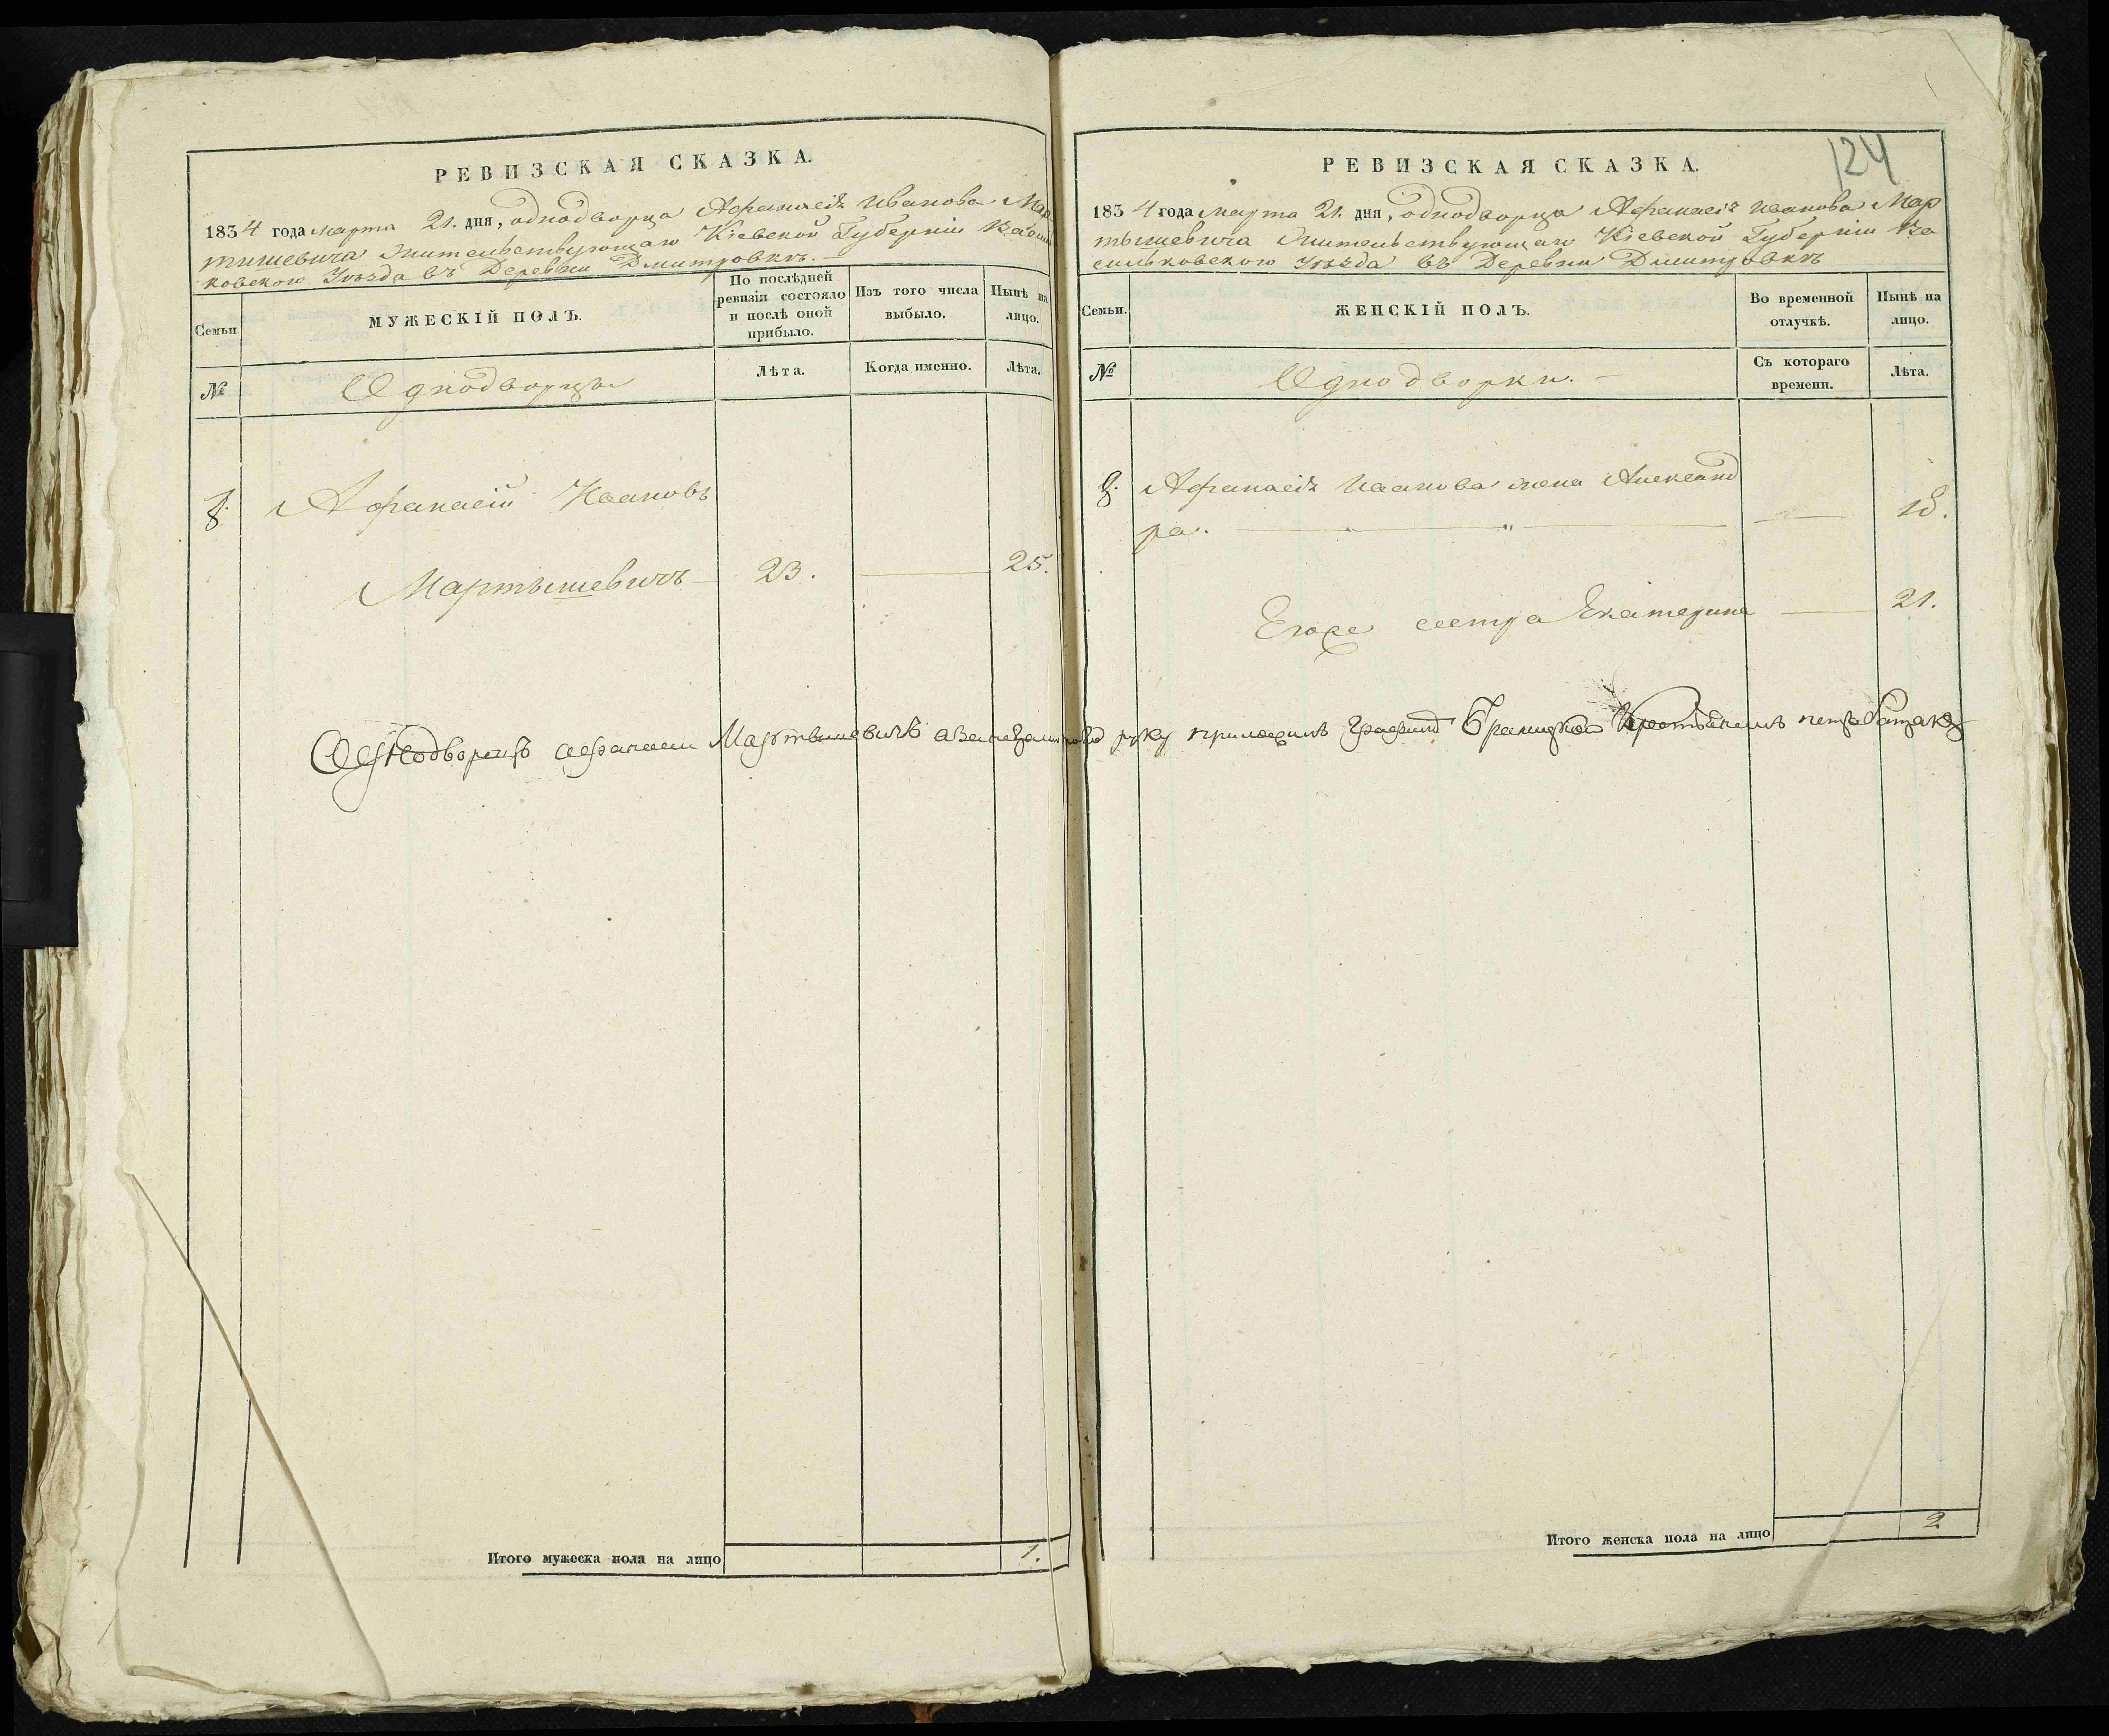 РЕВИЗСКАЯ СКАЗКА.
1834 года Марта 21. дня, однодворца Афанасія Иванова Мар
тишевича Жительствующаго Кіевской Губерніи Василь
ковского Уѣзда въ Деревни Дмитровкѣ.
Семьи
МУЖЕСКІЙ ПОЛЪ.
По послѣдней
ревизіи состояло
и послѣ оной
прибыло.
Изъ того числа
выбыло.
Нынѣ на
лицо.
№
Однодворцы
Лѣта.
Когда именно.
Лѣта.
8.
Афанасій Ивановъ
Мартышевичъ 23. 25.
Однодворецъ Афанасии Мартышевичъ
Итого мужеска пола на лицо 1.
124
РЕВИЗСКАЯ СКАЗКА.
1834 года Марта 21. дня, однодворца Афанасія Иванова Мар
тышевича Жительствующаго Кіевской Губерніи Ва
сильковского Уѣзда въ Деревни Дмитровкѣ
Семьи.
ЖЕНСКІЙ ПОЛЪ.
Во временной
отлучкѣ.
Нынѣ на
лицо.
№
Однодворки.
Съ котораго
времени.
Лѣта.
8.
Афанасія Иванова жена Александ
ра. 18.
Егоже сестра Екатерина 21.
руку приложилъ Графини Браницкой Крестьянинъ
Итого женска пола на лицо 2